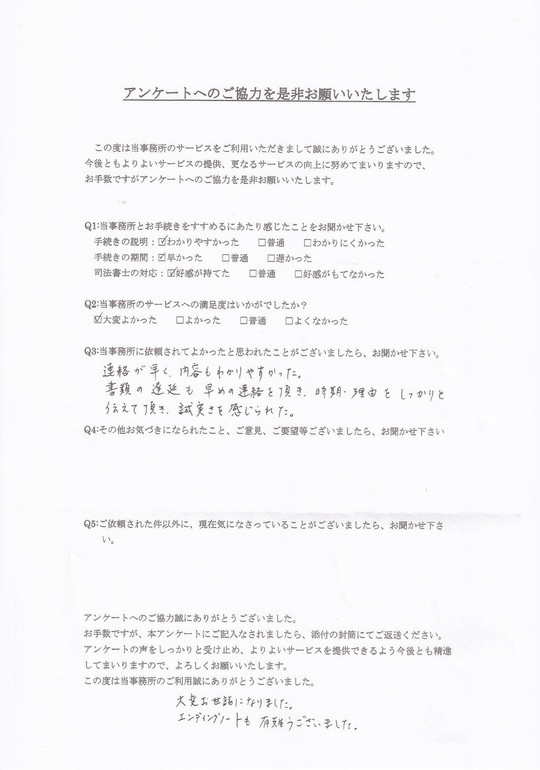 アンケートへのご協力を是非お願いいたします
この度は当事務所のサービスをご利用いただきまして誠にありがとうございました。
今後ともよりよいサービスの提供、更なるサービスの向上に努めてまいりますので、
お手数ですがアンケートへのご協力を是非お願いいたします。
Q1:当事務所とお手続きをすすめるにあたり感じたことをお聞かせ下さい。
手続きの説明：☑わかりやすかった　□普通　□わかりにくかった
手続きの期間：☑早かった　□普通　□遅かった
司法書士の対応：☑好感が持てた　□普通　□好感がもてなかった
Q2:当事務所のサービスへの満足度はいかがでしたか？
☑大変よかった　□よかった　□普通　□よくなかった
Q3:当事務所に依頼されてよかったと思われたことがございましたら、お聞かせ下さい。
連絡が早く、内容もわかりやすかった。
書類の遅延も早めの連絡を頂き、時期・理由をしっかりと
伝えて頂き、誠実さを感じられた。
Q4:その他お気づきになられたこと、ご意見、ご要望等ございましたら、お聞かせ下さい
Q5:ご依頼された件以外に、現在気になさっていることがございましたら、お聞かせ下さ
い。
アンケートへのご協力誠にありがとうございました。
お手数ですが、本アンケートにご記入なされましたら、添付の封筒にてご返送ください。
アンケートの声をしっかりと受け止め、よりよいサービスを提供できるよう今後とも精進
してまいりますので、よろしくお願いいたします。
この度は当事務所のご利用誠にありがとうございました。
大変お世話になりました。
エンディングノートも有難うございました。